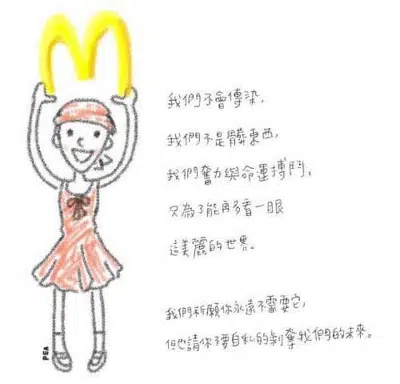 我們不會傳染，
我們不是髒東西，
我們奮力與命運搏鬥，
只為了能再多看一眼
這美麗的世界。
我們祈願你永遠不需要它，
但也請你不要自私的剝奪我們的未來。
PEA